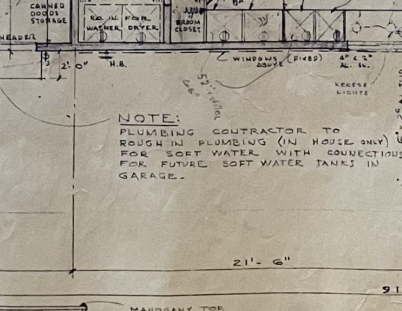 CANNED
GOODS
STORAGE
RO. IN. FOR
WASHER DRYER
BROOM
CLOSET
HEADER
2'-0"
H.B.
WINDOWS (FIXED)
ABOVE
4" C 2"
AL. SL.
RECESS
LIGHTS
NOTE:
PLUMBING CONTRACTOR TO
ROUGH IN PLUMBING (IN HOUSE ONLY)
FOR SOFT WATER WITH CONNECTIONS
FOR FUTURE SOFT WATER TANKS IN
GARAGE.
21'-6"
MAHOGANY TOP